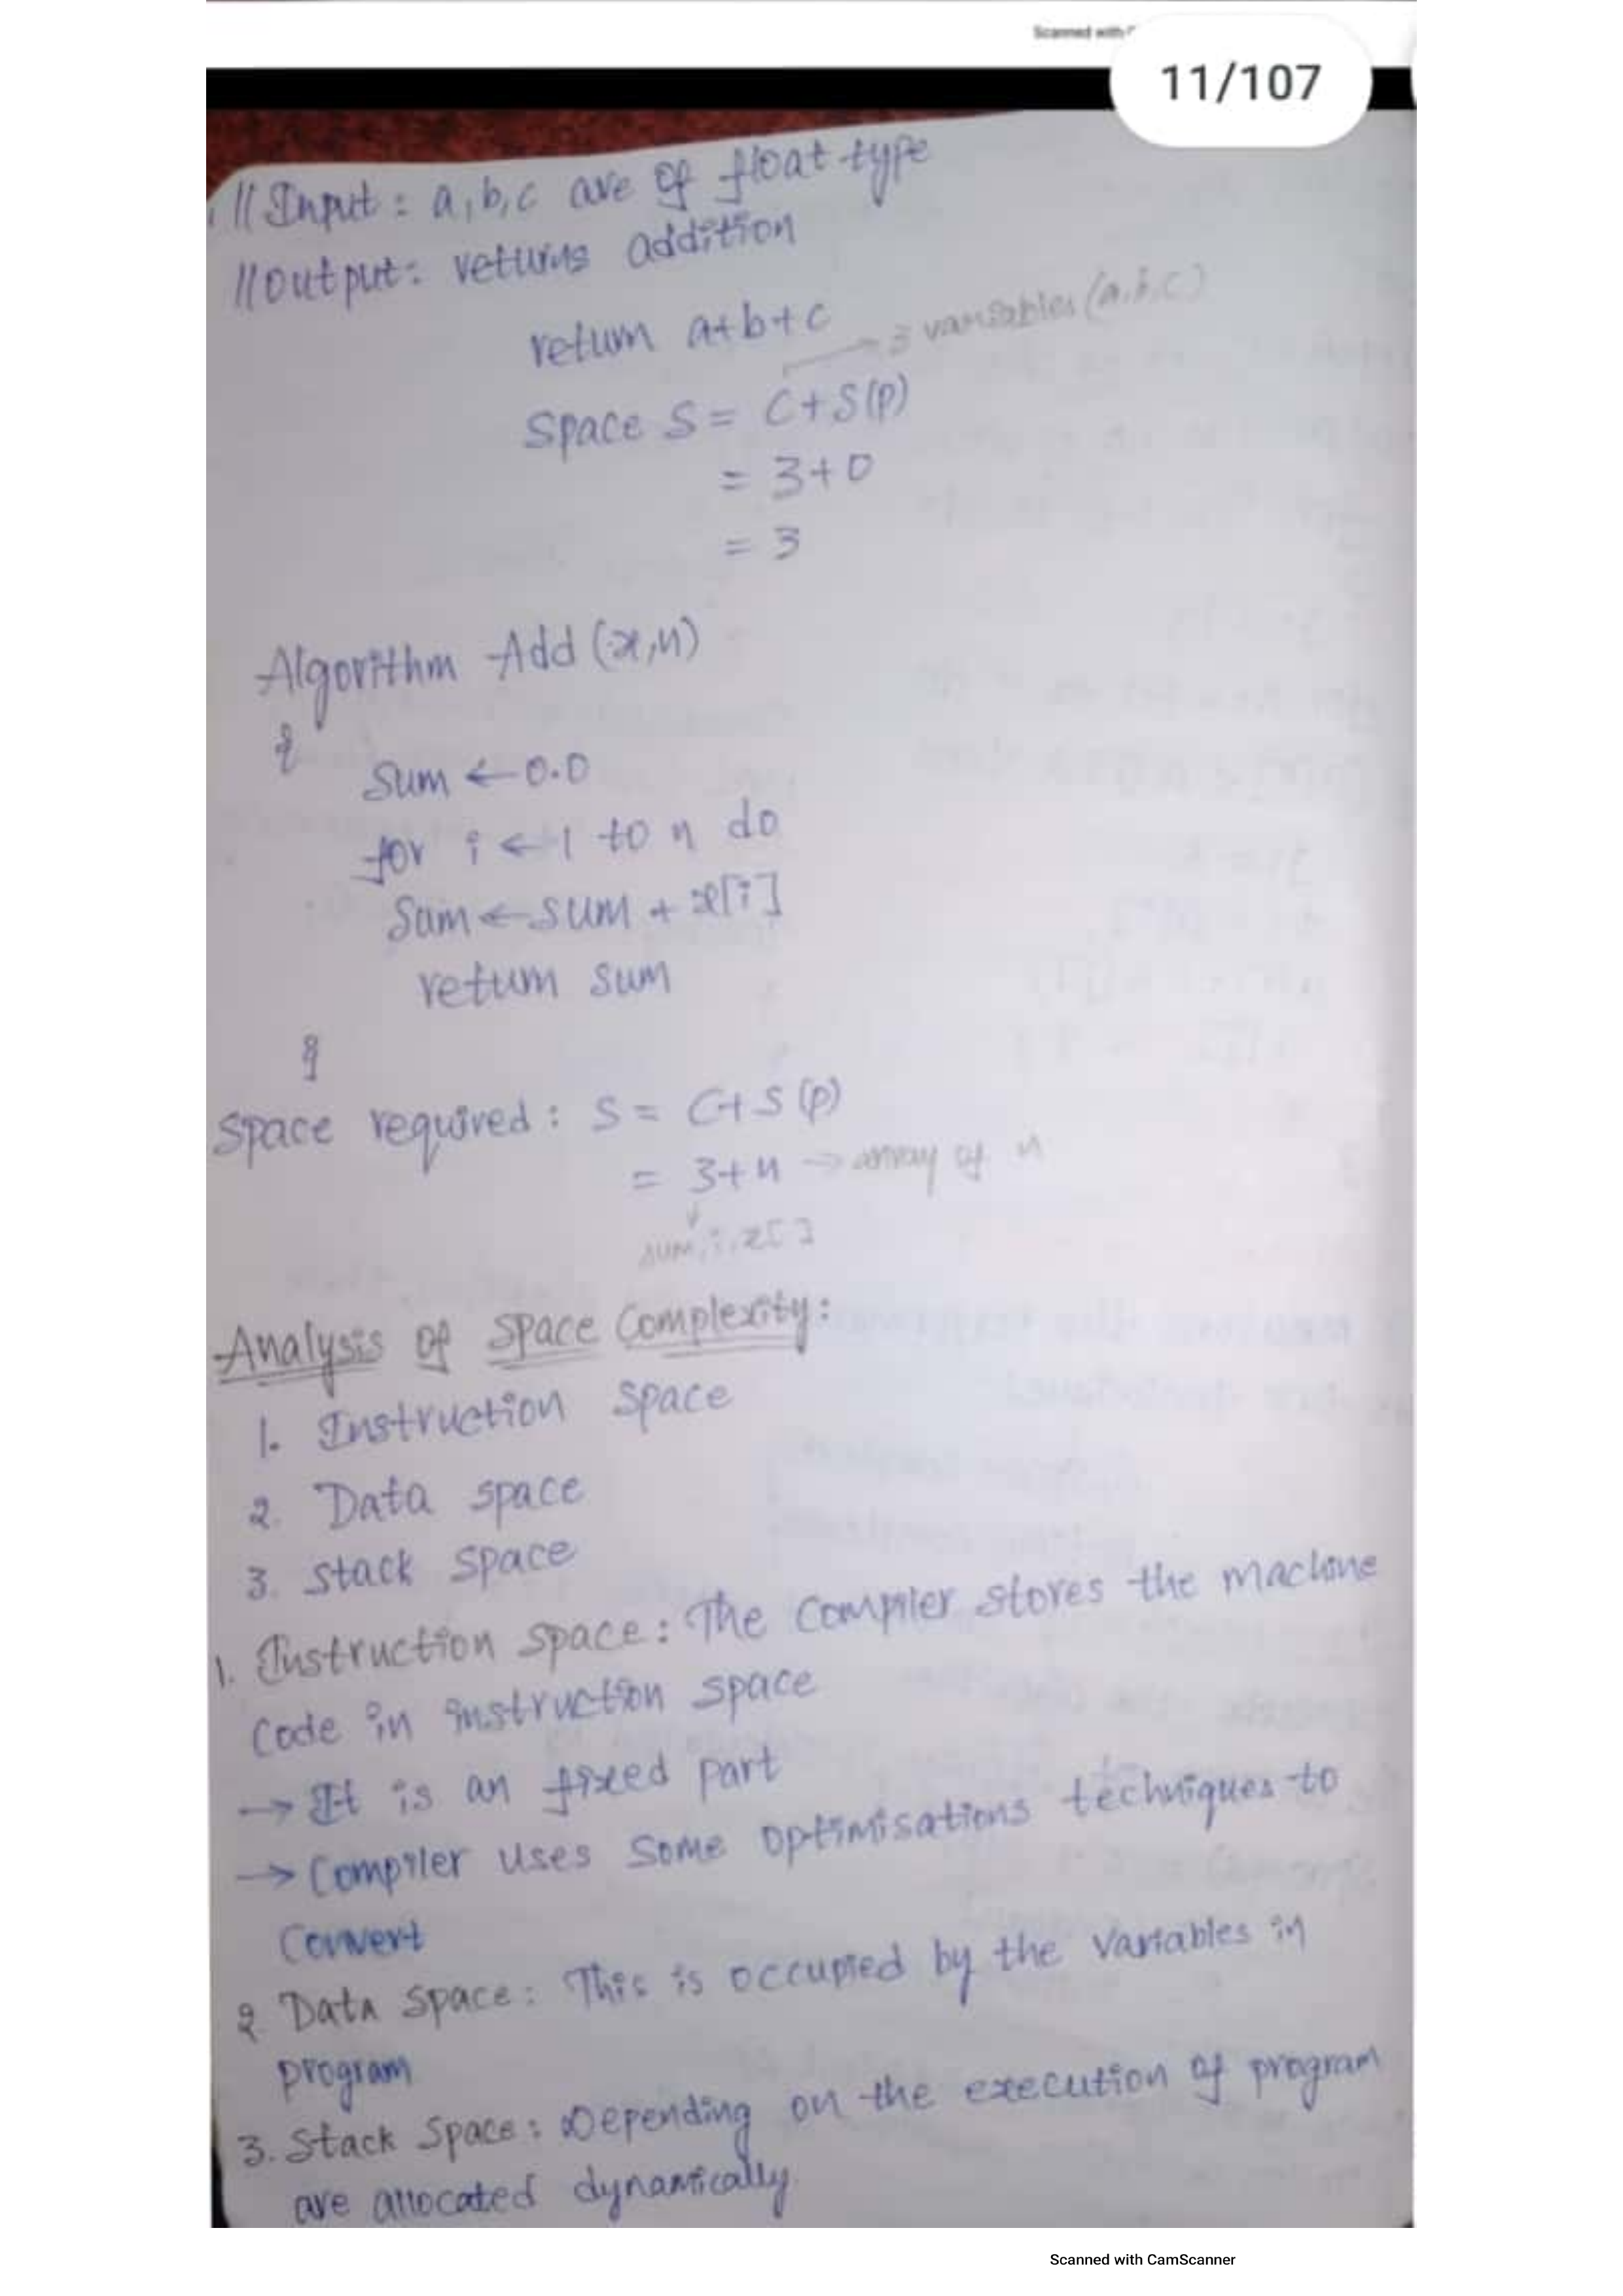 Scanned with
11/107
// Input : a,b,c are of float type
// Output : returns addition
return a+b+c
3 variables (a,b,c)
Space S = C+S(P)
= 3+0
= 3
Algorithm Add (x,n)
{
Sum ← 0.0
for i ← 1 to n do
Sum ← sum + x[i]
return sum
}
Space required : S = C+S(P)
= 3+n → array of n
sum, i, x[ ]
Analysis of Space Complexity :
1. Instruction Space
2. Data space
3. Stack Space
1. Instruction Space : The Compiler stores the machine
Code in instruction space
→ It is an fixed part
→ Compiler uses some optimisations techniques to
Convert
2 Data Space : This is occupied by the variables in
program
3. Stack Space : Depending on the execution of program
are allocated dynamically.
Scanned with CamScanner